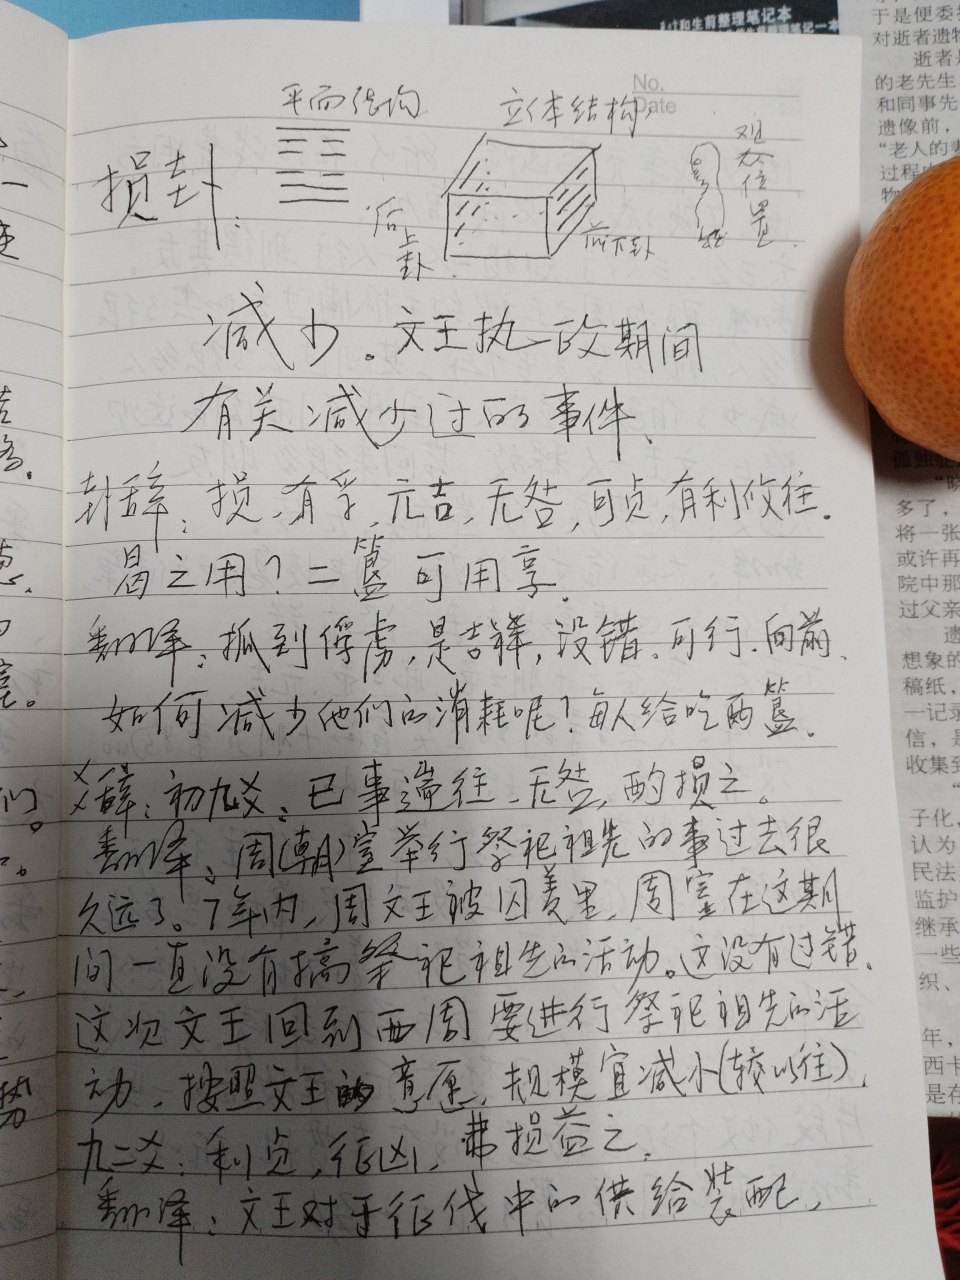 平面结构
立体结构
No.
Date
损卦：
后上卦
前下卦
观众位置
减少。文王执政期间
有关减少过的事件、
卦辞：损，有孚，元吉，无咎，可贞，有利攸往。
曷之用？二簋可用享。
翻译：抓到俘虏，是吉祥，没错。可行．向前、
如何减少他们的消耗呢？每人给吃两簋．
爻辞：初九爻：已事遄往，无咎，酌损之。
翻译：周(朝)室举行祭祀祖先的事过去很
久远了。7年内，周文王被囚羑里，周室在这期
间一直没有搞祭祀祖先的活动。这没有过错．
这次文王回到西周要进行祭祀祖先的活
动，按照文王的意愿，规模宜减小(较以往)，
九二爻：利贞，征凶，弗损益之．
翻译：文王对于征伐中的供给装配，
和生前整理笔记本
整理笔记一本
于是便委
对逝者遗物
逝者是
的老先生
和同事先
遗像前，
“老人的妻
过程
物
孤独
多了，
将一张
或许再
院中那
过父亲
遗
想象的
稿纸，
一记录
信，是
收集到
子化，
认为
民法
监护
继承
一些
织、
年，
西卡
是在